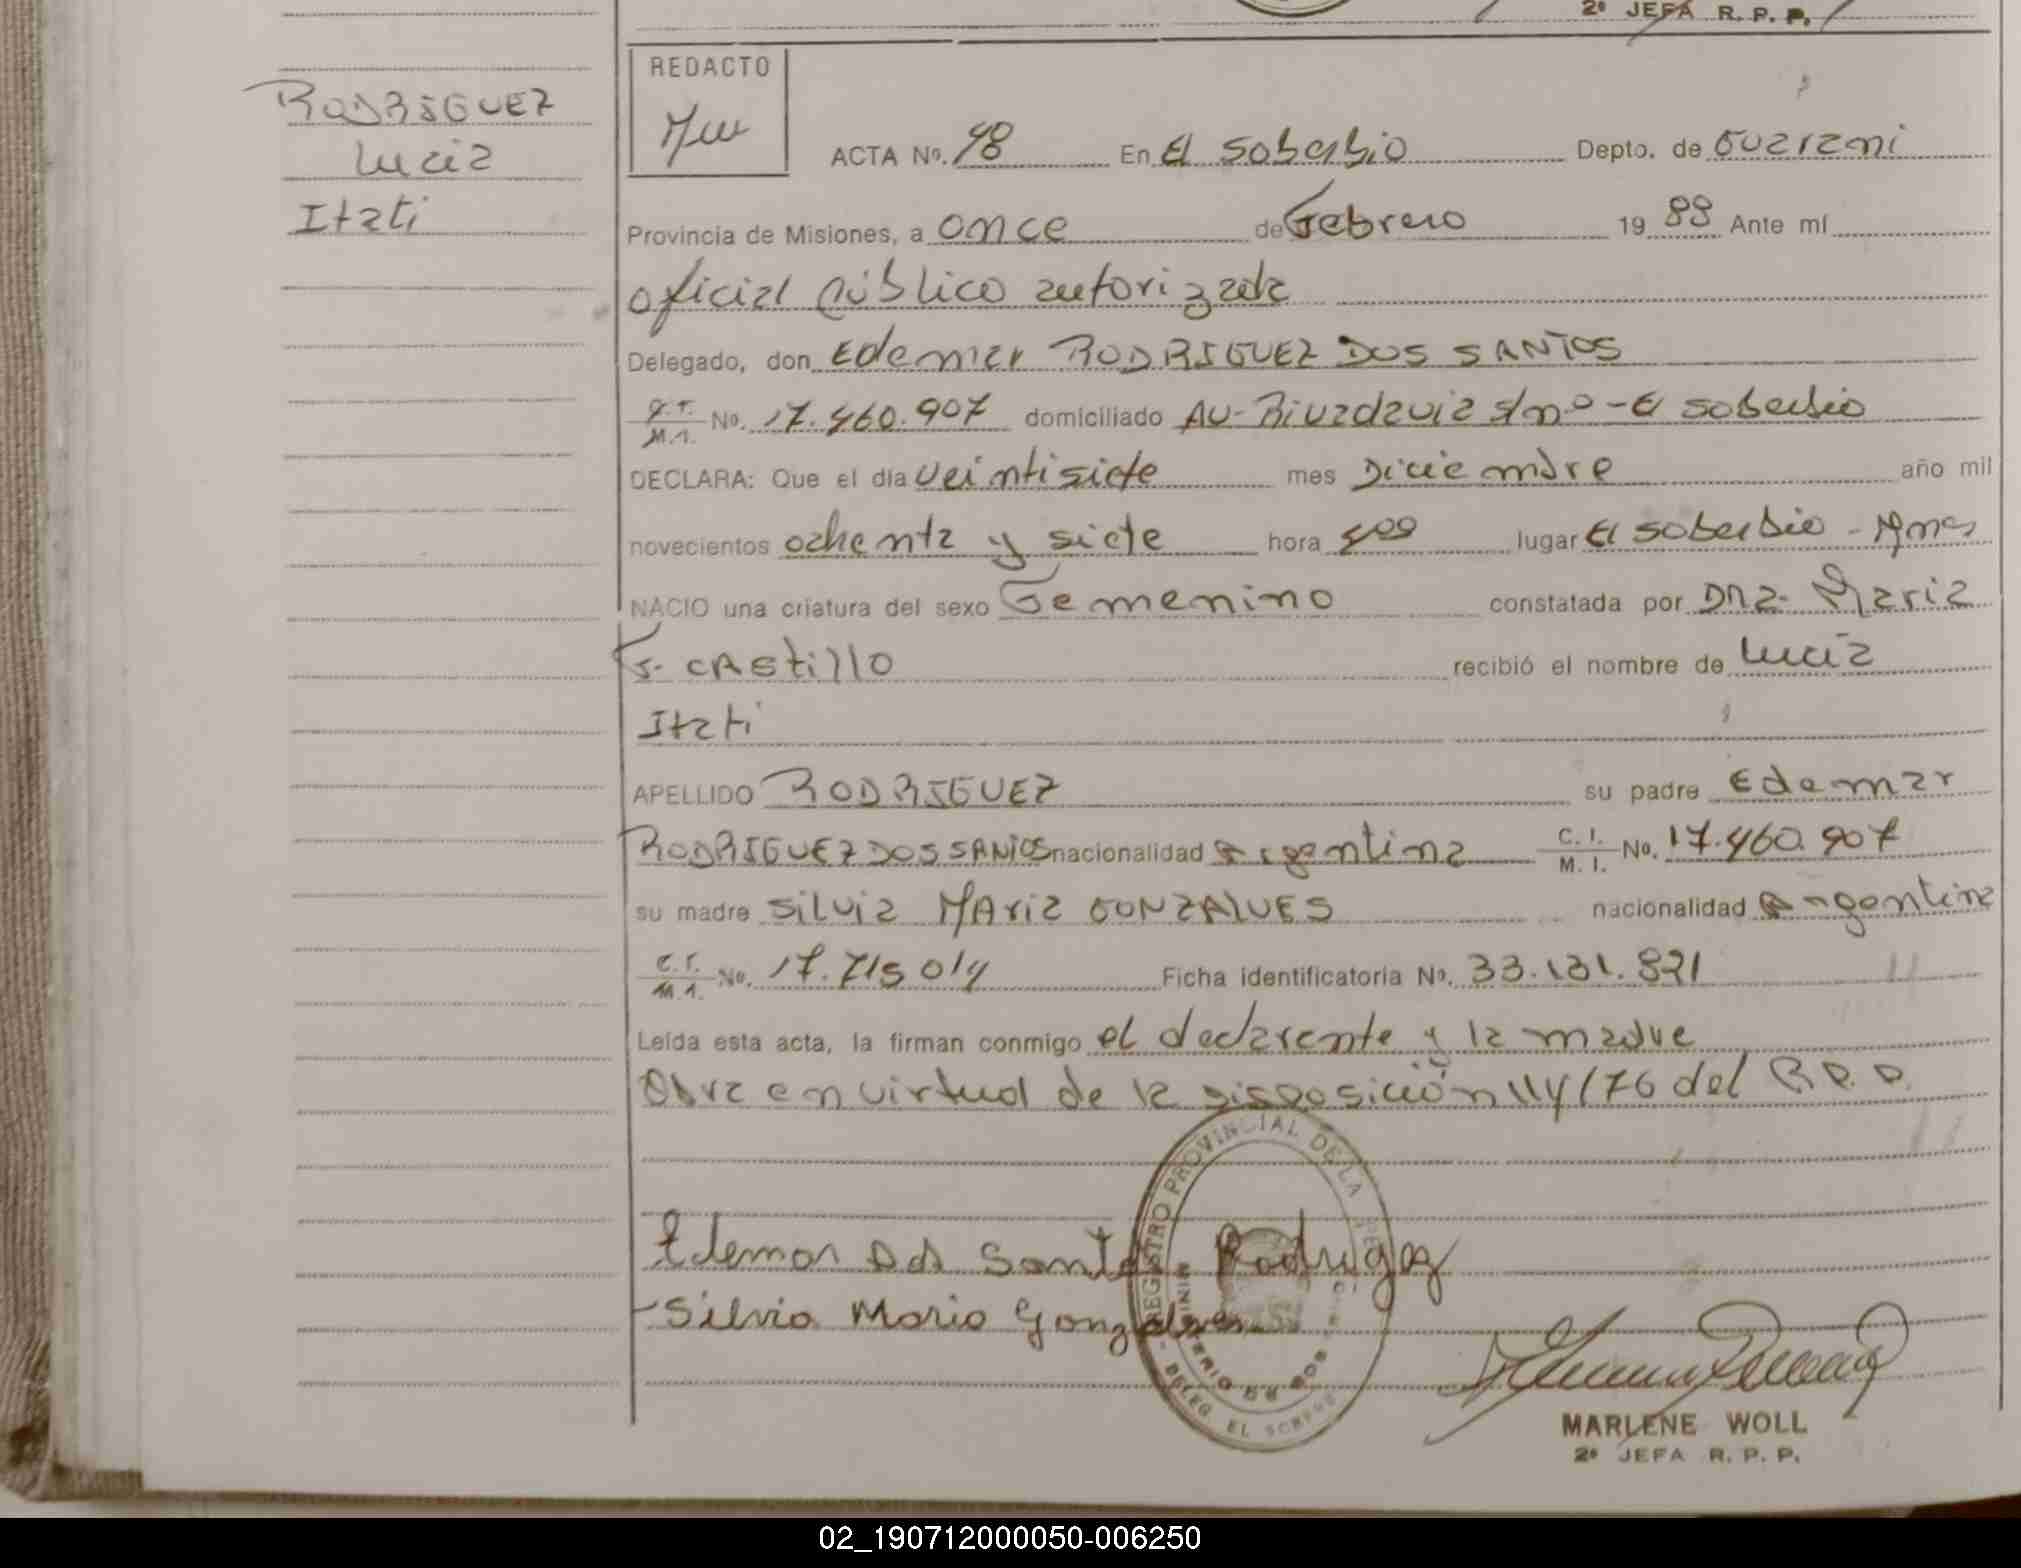 2º JEFA R. P. P.
RODRIGUEZ
Lucia
Itati
REDACTO
Mw
ACTA Nº. 48 En El Soberbio Depto. de Guarani
Provincia de Misiones, a once de Febrero 19 88 Ante mí
oficial público autorizada
Delegado, don Edemar RODRIGUEZ DOS SANTOS
C.I. M.I. Nº. 17.460.907 domiciliado AV- Rivadavia s/nº - El soberbio
DECLARA: Que el día veintisiete mes Diciembre año mil
novecientos ochenta y siete hora lugar El soberbio - Mnes
NACIO una criatura del sexo Femenino constatada por DRa. Maria
CAStillo recibió el nombre de Lucia
Itati
APELLIDO RODRIGUEZ su padre Edemar
RODRIGUEZ DOS SANTOS nacionalidad argentina C. I. M. I. Nº. 17.460.907
su madre Silvia MAria GONZALVES nacionalidad argentina
C.I. M.I. Nº. 17.715 014 Ficha identificatoria Nº. 33.131.821
Leída esta acta, la firman conmigo el declarante y la madre
Obra en virtud de la disposición 114/76 del R.P.P.
REGISTRO PROVINCIAL DE LA
DELEG. EL SOBERBIO
Edemar Dos Santos Rodriguez
Silvia Maria Gonzalves
MARLENE WOLL
2º JEFA R. P. P.
02_190712000050-006250